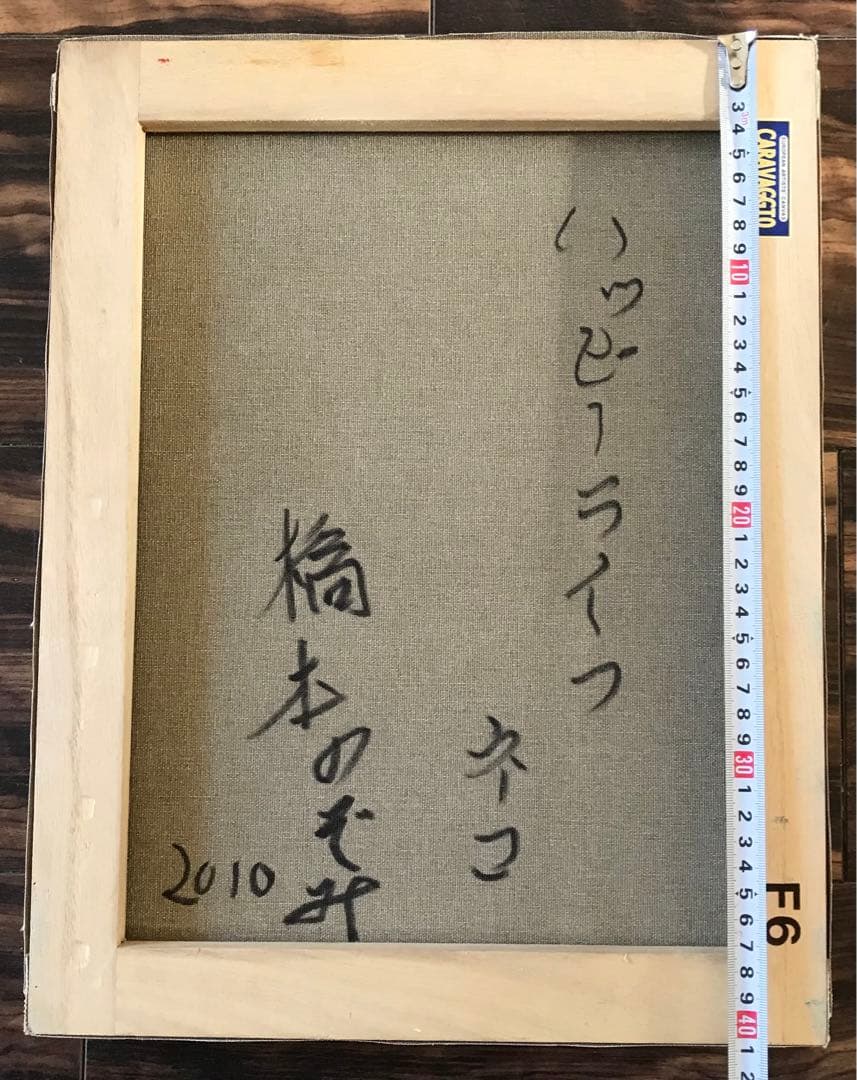 ハッピーライフ
ネコ
橋本のぞみ
2010
EUROPEAN ARTISTS CANVAS
CARAVAGGIO
F6
3 3m 4 5 6 7 8 9 10 1 2 3 4 5 6 7 8 9 20 1 2 3 4 5 6 7 8 9 30 1 2 3 4 5 6 7 8 9 40 1 2